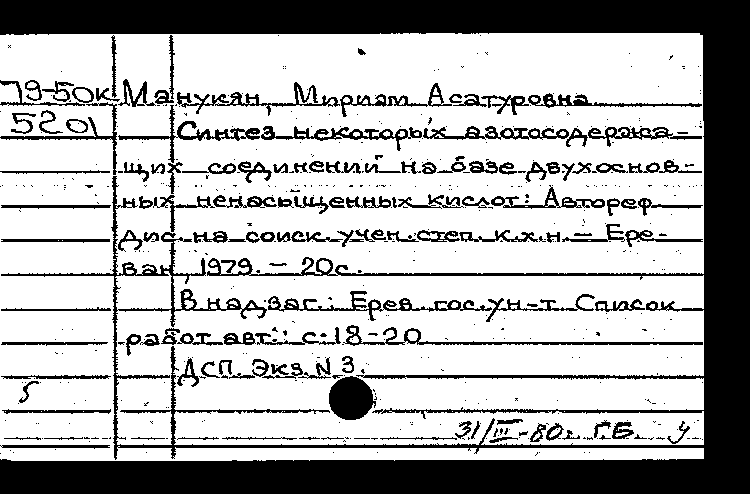 79-50к Манукян, Мириам Асатуровна
5201 Синтез некоторых азотосодержа-
щих соединений на базе двухоснов-
ных ненасыщенных кислот: Автореф.
дис. на соиск. учен. степ. к.х.н. — Ере-
ван, 1979. — 20с.
В надзаг.: Ерев. гос. ун-т. Список
работ авт.: с. 18-20
ДСП. Экз. N 3.
31/III-80г. Г.Б. У